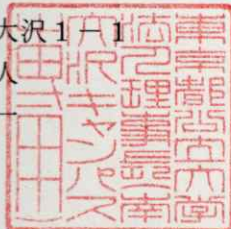 大沢１－１
人
東京都公立大学
法人理事長南
大沢キャンパス